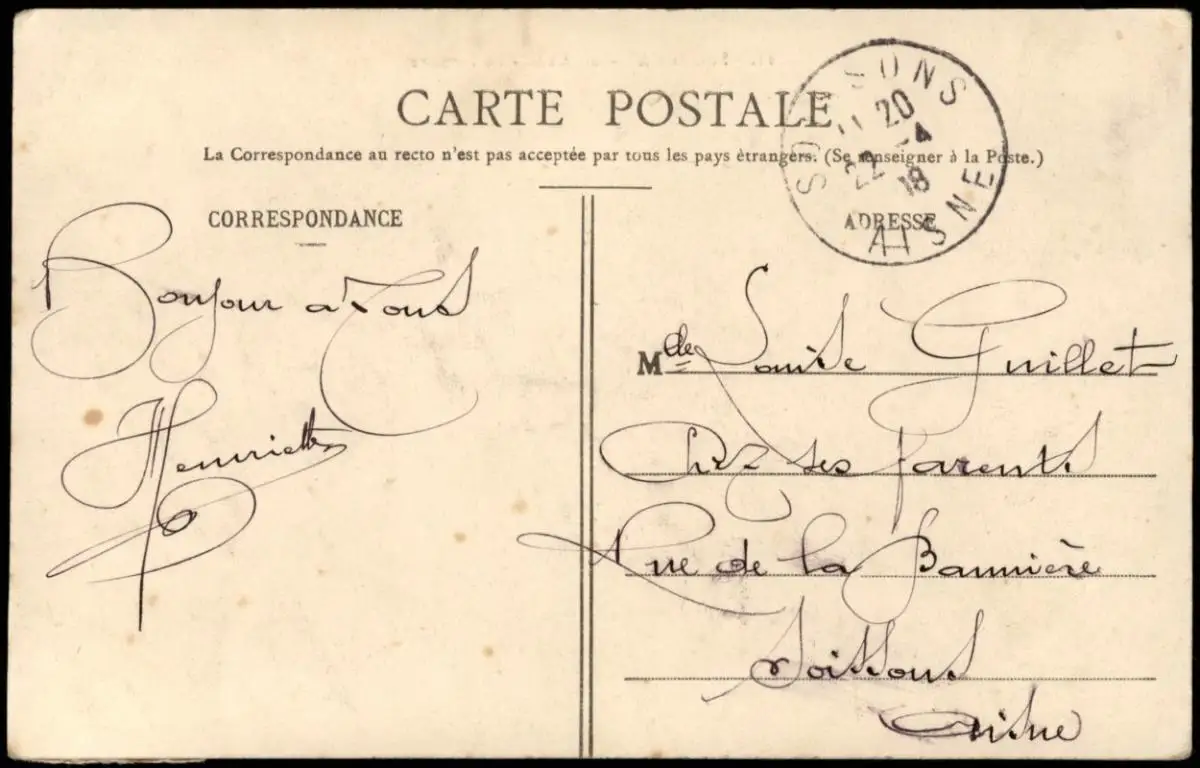 CARTE POSTALE
La Correspondance au recto n'est pas acceptée par tous les pays étrangers. (Se renseigner à la Poste.)
SOISSONS
20
22 -4
18
AISNE
CORRESPONDANCE
Bonjour a Tous
Henriette
ADRESSE
Mdle Louise Guillet
Chez ses parents
Rue de la Bannière
Soissons
Aisne